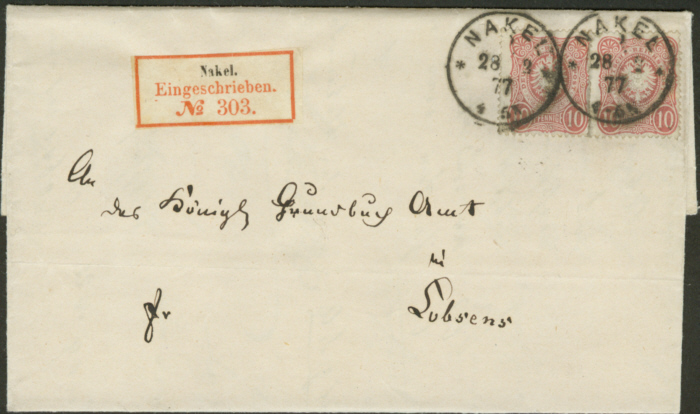 Nakel.
Eingeschrieben.
№ 303.
NAKEL
28 2
77
NAKEL
28 2
77
10
10
An
das Königl Grundbuch Amt
in
fr
Lobsens